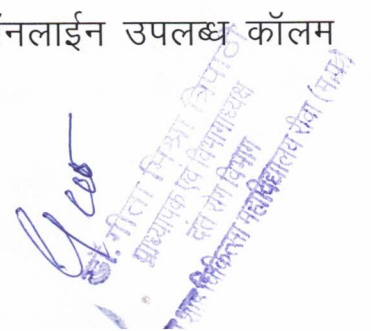 नलाईन उपलब्ध कॉलम
डॉ. गीता मिश्रा त्रिपाठी
प्राध्यापक एवं विभागाध्यक्ष
दंत रोग विभाग
शाह चिकित्सा महाविद्यालय रीवा (म.प्र.)